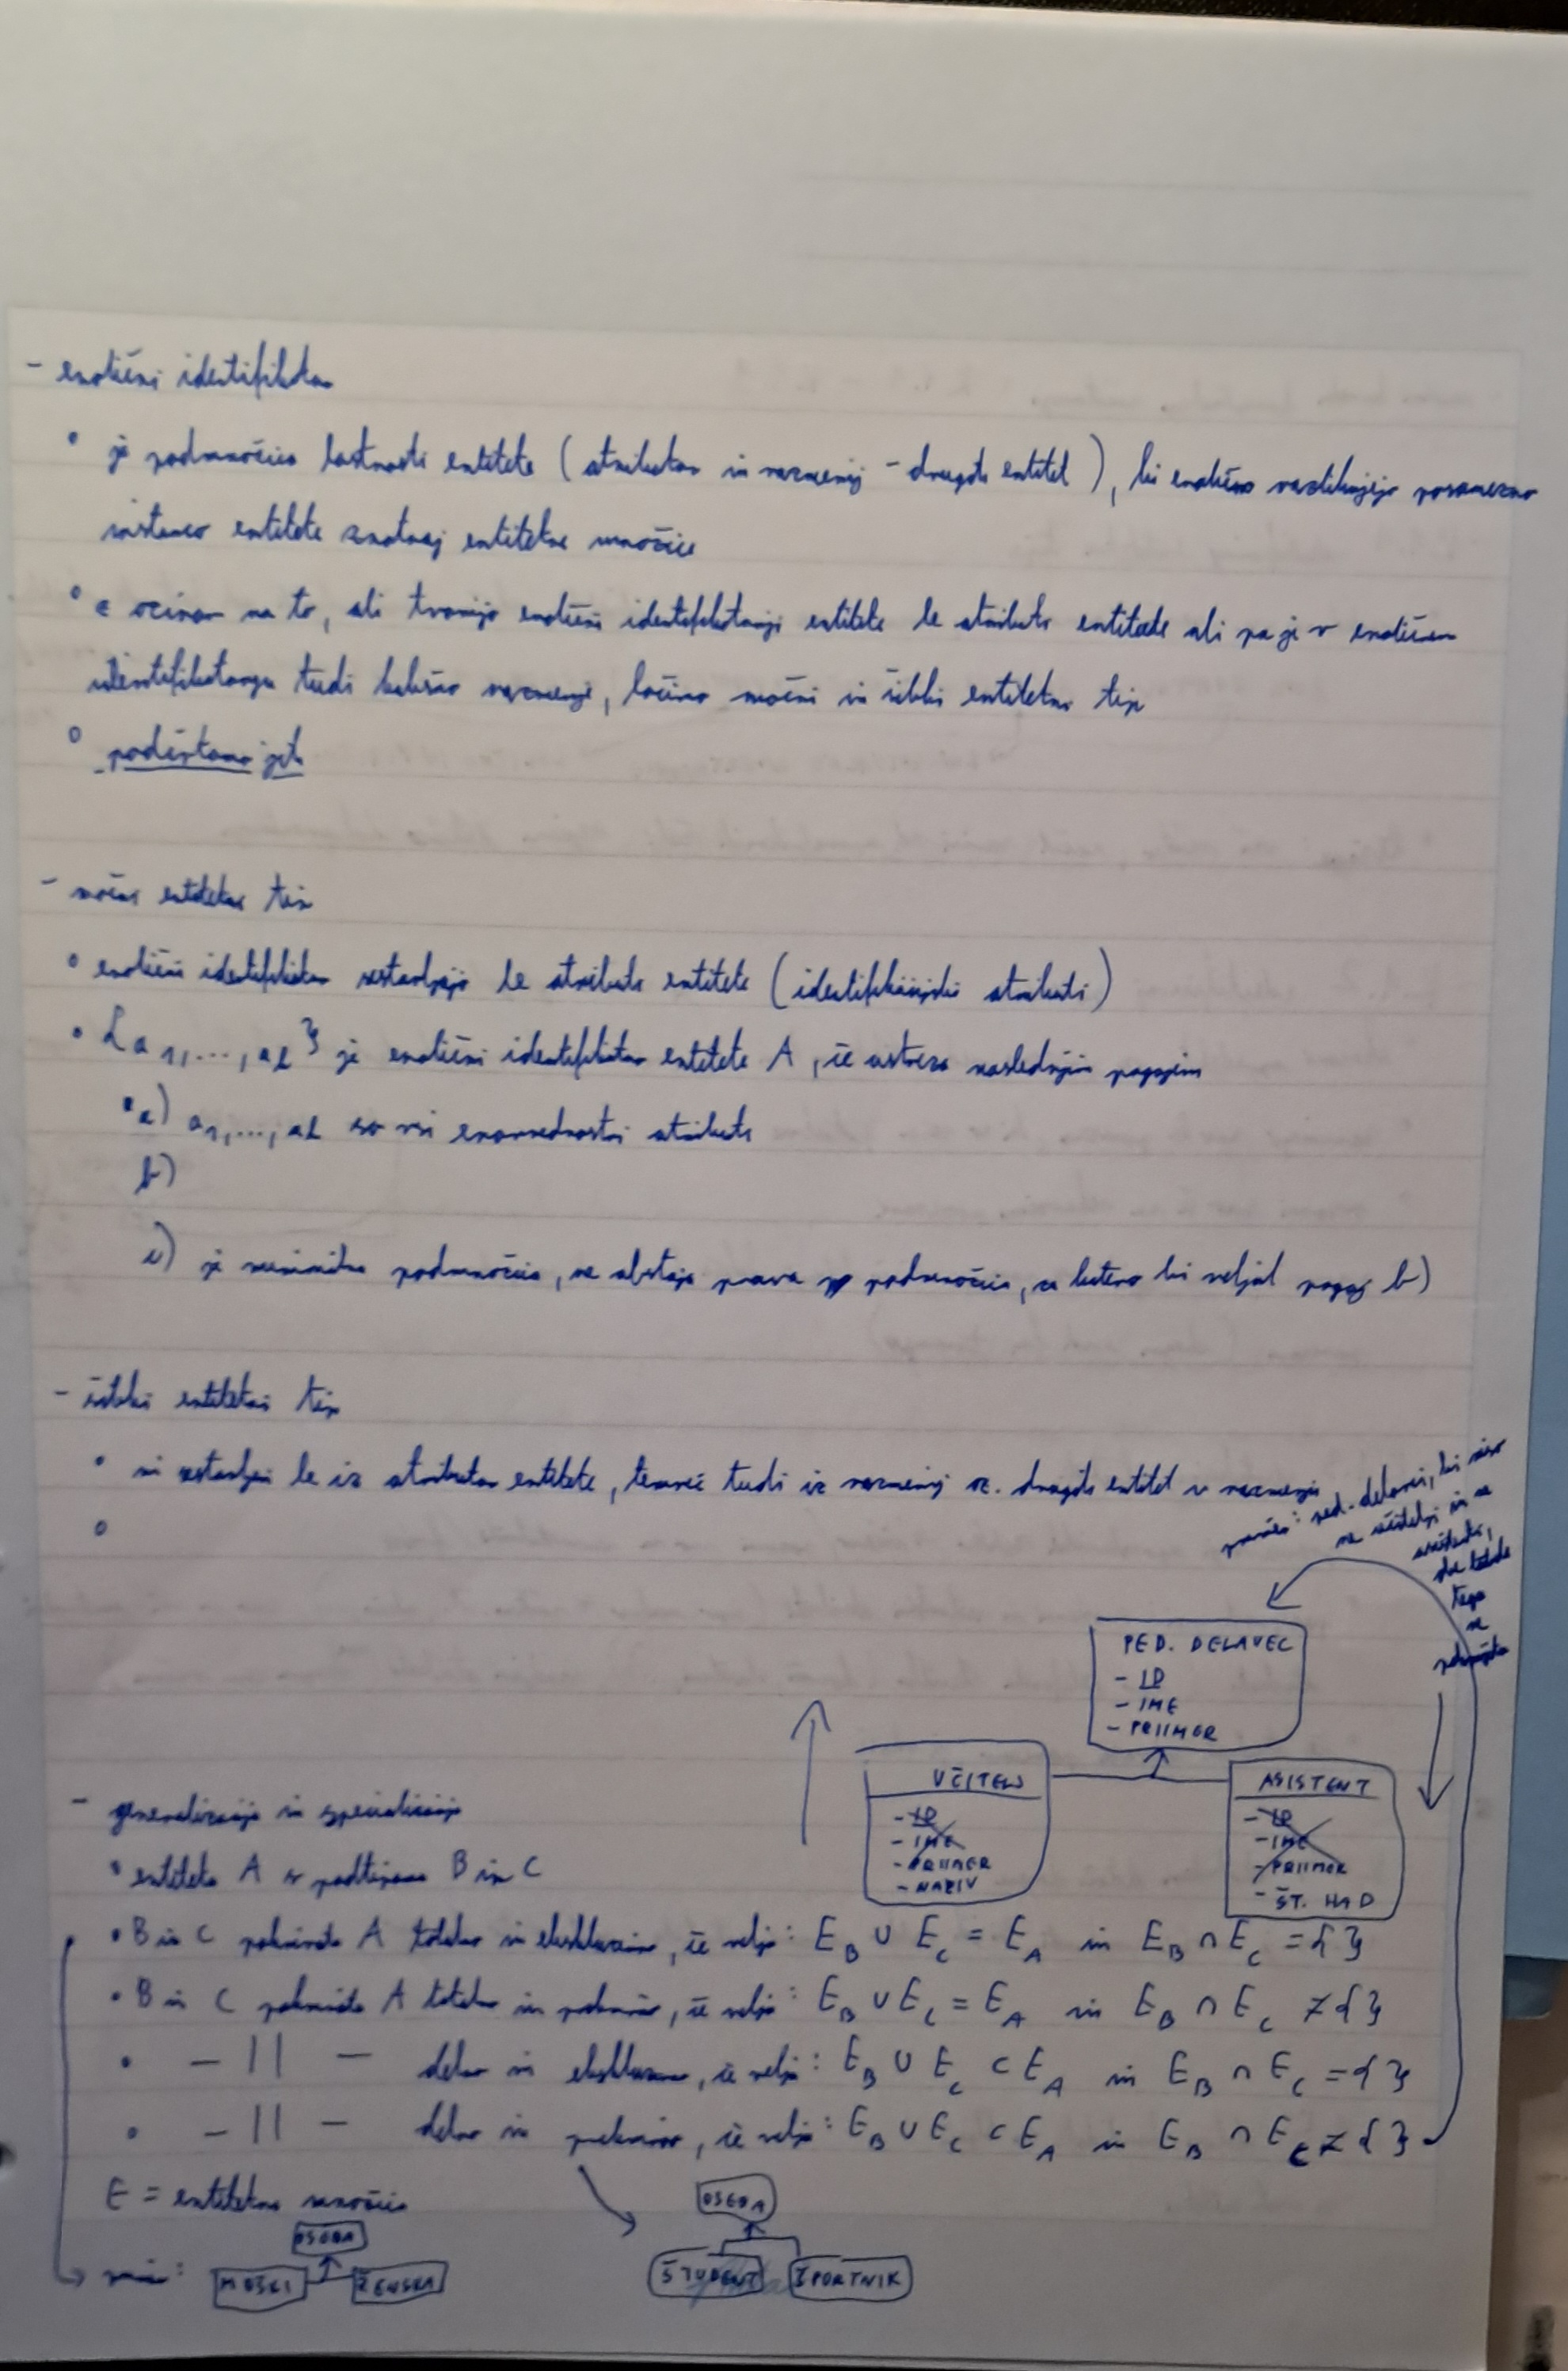 - enolični identifikator
• je podmnožica lastnosti entitete (atributov in razmerij - drugih entitet), ki enolično razlikujejo posamezno
instanco entitete znotraj entitetne množice
• ozirom na to, ali tvorijo enolični identifikatorji entitete le atributi entitete ali pa je v enoličnem
identifikatorju tudi kakšno razmerje, ločimo močni in šibki entitetni tip
•
- močni entitetni tip
• enolični identifikator sestavljajo le atributi entitete (identifikacijski atributi)
• {a1,..., ak} je enolični identifikator entitete A, če ustreza naslednjim pogojem
• a) a1,..., ak so vsi enovrednostni atributi
b)
c) je minimalna podmnožica, ne obstaja prava podmnožica, za katero bi veljal pogoj b)
- šibki entitetni tip
• ni sestavljen le iz atributov entitete, temveč tudi iz razmerij oz. drugih entitet v razmerju
•
ped. delavci, ki niso
ne učitelji in ne
asistenti,
tega
se
PED. DELAVEC
- ID
- IME
- PRIIMEK
UČITELJ
- ID
- IME
- PRIIMEK
- NAZIV
ASISTENT
- ID
- IME
- PRIIMEK
- ŠT. HAD
- generalizacija in specializacija
• entiteta A s podtipoma B in C
• B in C pokrivata A totalno in ekskluzivno, če velja: E_B ∪ E_C = E_A in E_B ∩ E_C = { }
• B in C pokrivata A totalno in prekrivno, če velja: E_B ∪ E_C = E_A in E_B ∩ E_C ≠ { }
• -||- delno in ekskluzivno, če velja: E_B ∪ E_C ⊂ E_A in E_B ∩ E_C = { }
• -||- delno in prekrivno, če velja: E_B ∪ E_C ⊂ E_A in E_B ∩ E_C ≠ { }
E = entitetna množica
OSEBA
MOŠKI
ŽENSKA
OSEBA
ŠTUDENT
ŠPORTNIK